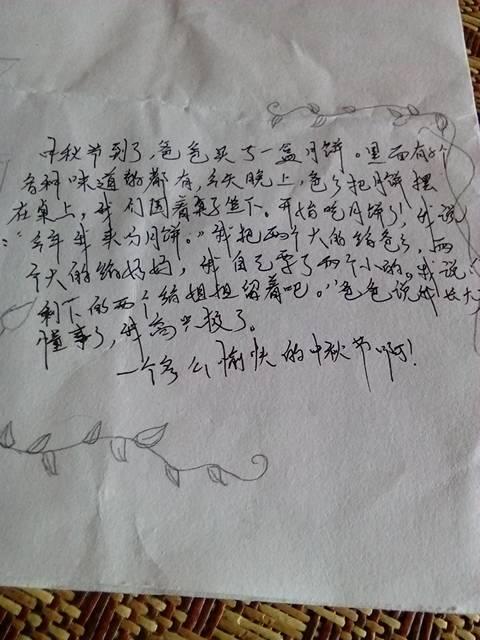 中秋节到了,爸爸买了一盒月饼。里面有8个
各种味道的都有,今天晚上,爸爸把月饼摆
在桌上,我们围着桌子坐下。开始吃月饼了,我说
:“今年我来分月饼。”我把两个大的给爸爸,两
个大的给妈妈,我自己要了两个小的。我说:“
剩下的两个给姐姐留着吧。”爸爸说我长大
懂事了,我高兴极了。
一个多么愉快的中秋节啊!